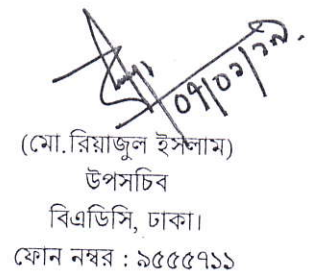 ০৭/০১/১৯
(মো.রিয়াজুল ইসলাম)
উপসচিব
বিএডিসি, ঢাকা।
ফোন নম্বর : ৯৫৫৫৭১১